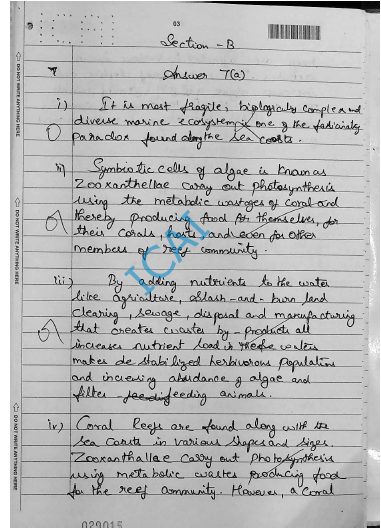 03
Section - B
Answer 7(a)
i) It is most fragile, biologically complex and
diverse marine ecosystem is one of the fascinating
paradox found along the sea coasts.
ii) Symbiotic cells of algae is known as
Zooxanthellae carry out photosynthesis
using the metabolic wastages of coral and
thereby producing food for themselves, for
their corals, hosts and even for other
members of reef community.
iii) By adding nutrients to the water
like agriculture, slash-and-burn land
clearing, sewage, disposal and manufacturing
that creates waster by-products all
increases nutrient load in these waters
makes de stabilized herbivorous population
and increasing abundance of algae and
filter feeding animals.
iv) Coral Reefs are found along with the
Sea Coasts in various shapes and sizes.
Zooxanthallae carry out photosynthesis
using metabolic wastes producing food
for the reef ammunity. However, a coral
029015
ICAI
DO NOT WRITE ANYTHING HERE
DO NOT WRITE ANYTHING HERE
DO NOT WRITE ANYTHING HERE